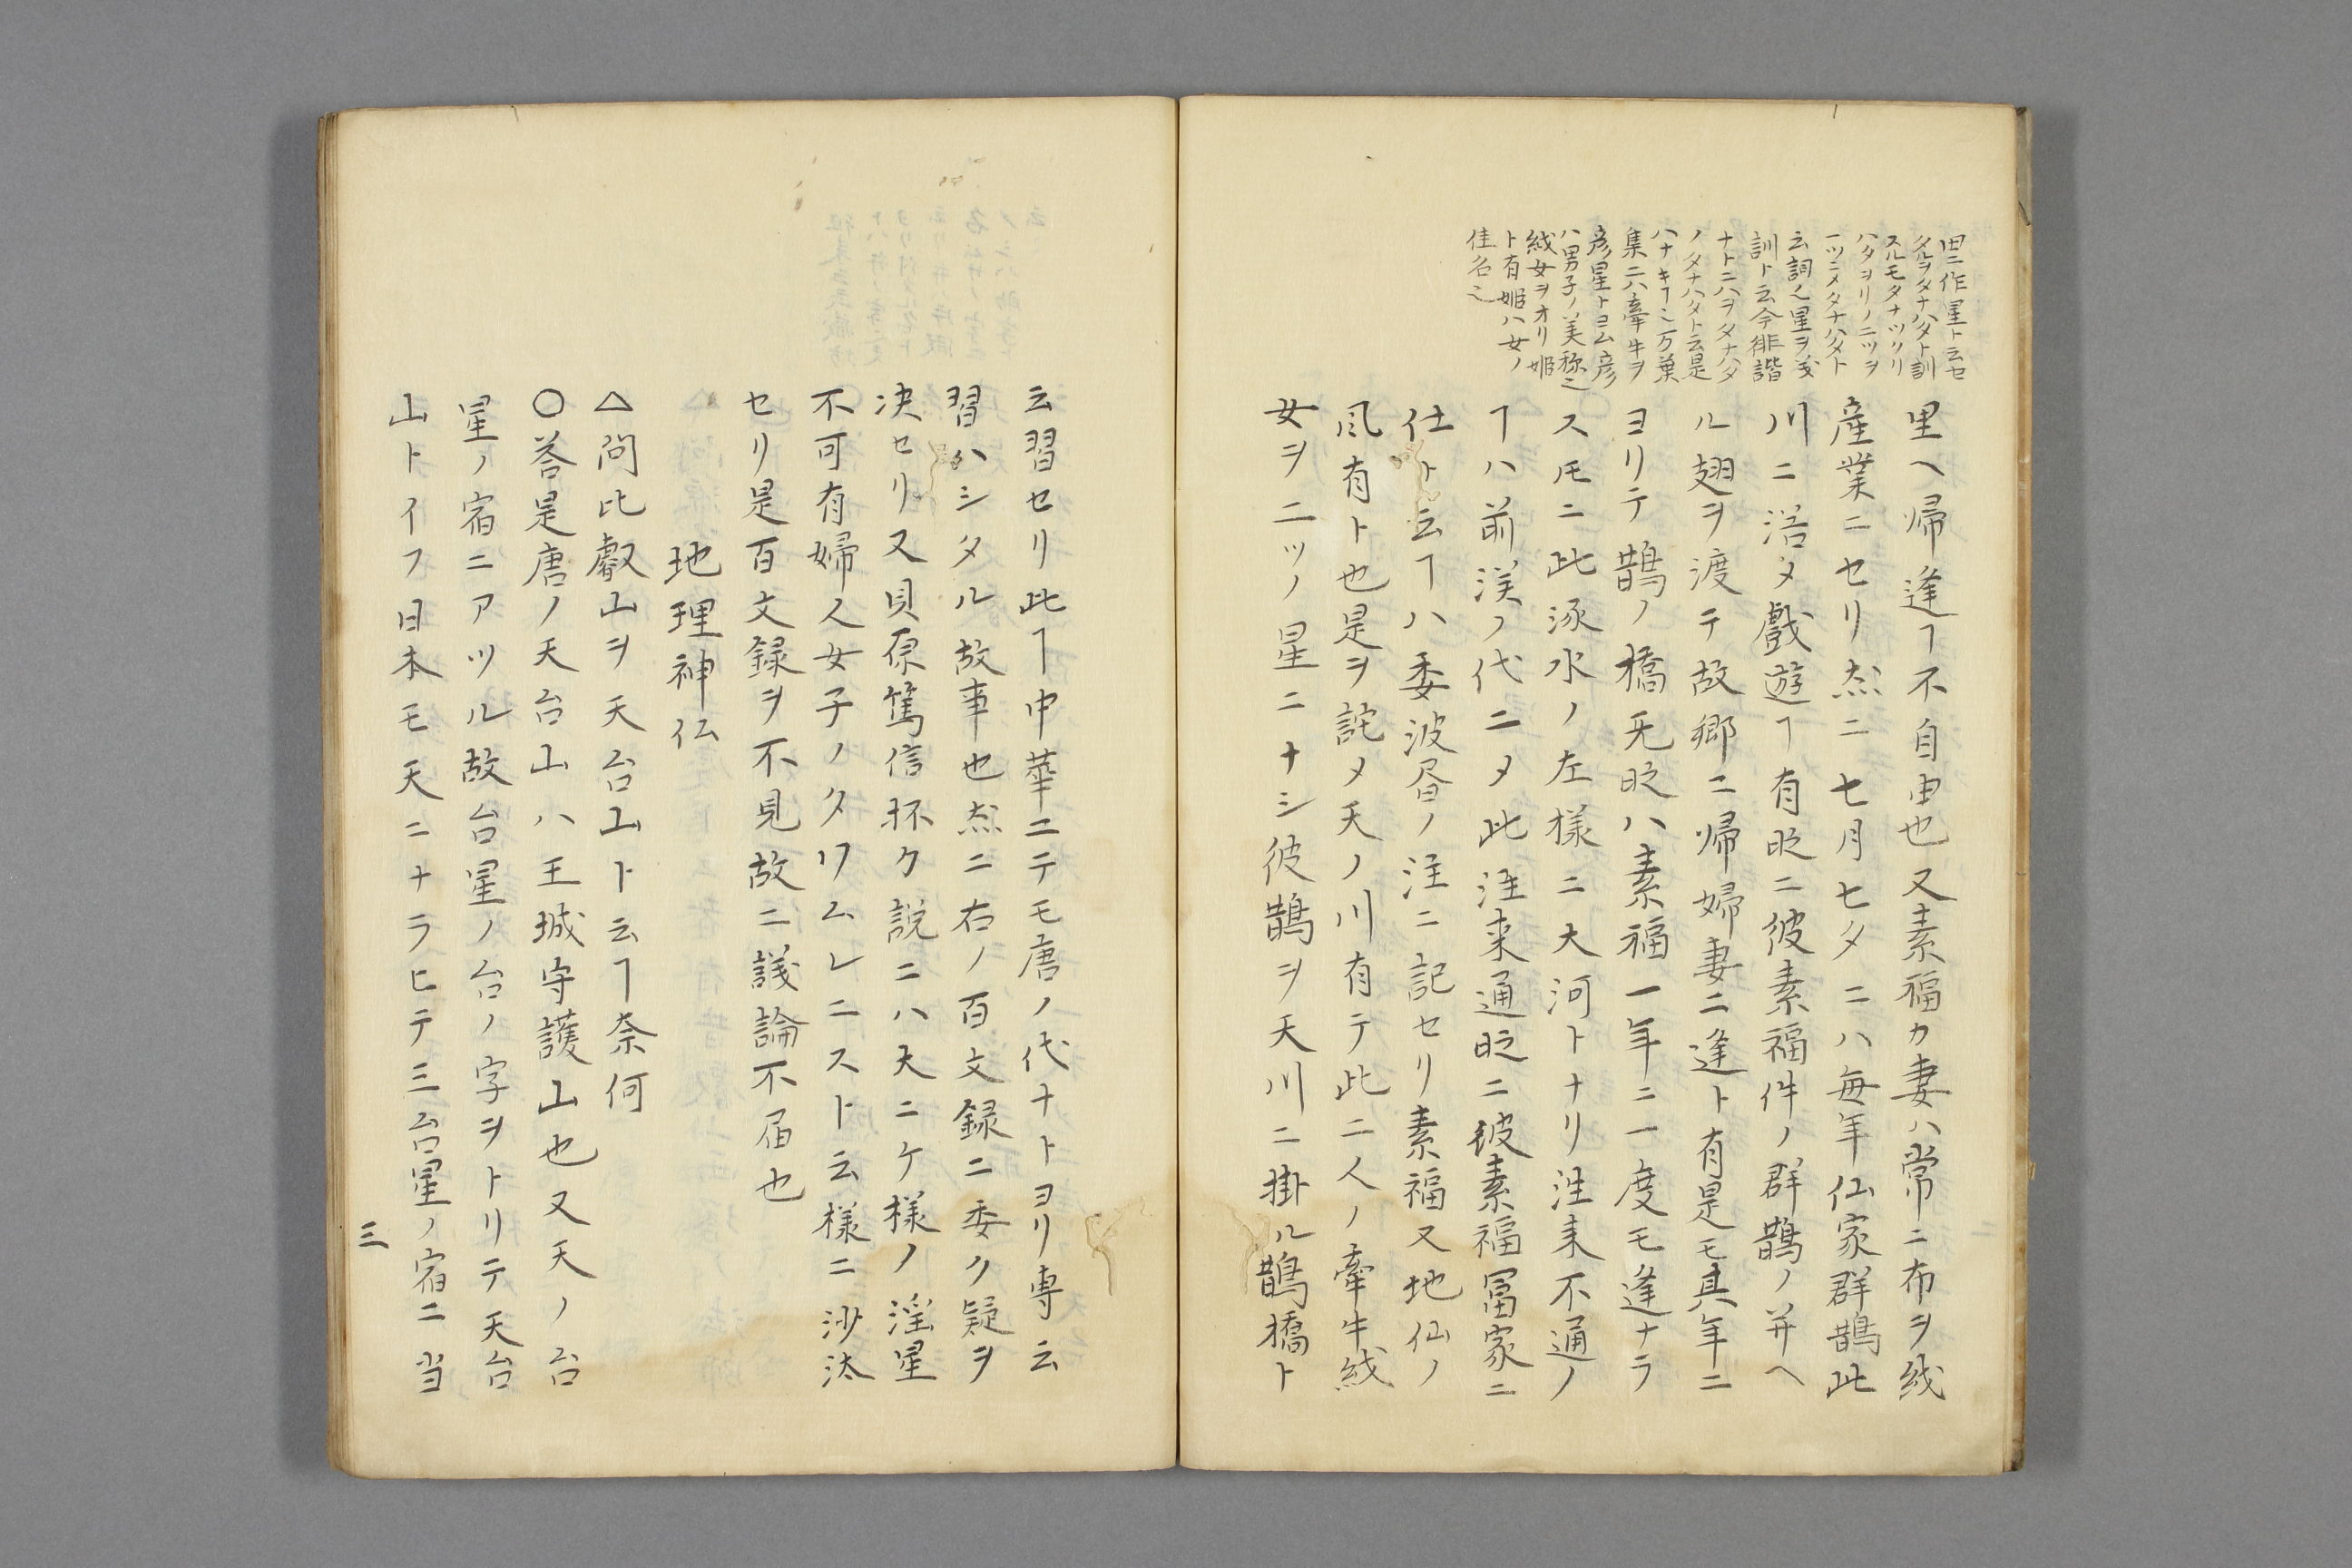 田ニ作星ト云セ
タルヲタナハタト訓
スルモタナツクリ
ハタヲリノ二ツヲ
一ツニメタナハタト
云詞也星ヲ㦮
訓ト云今俳諧
ナトニハヲタナハタ
ノタナハタト云是
ハナキヿ也万葉
集ニハ牽牛ヲ
彦星トヨム彦
ハ男子ノ美称也
織女ヲオリ姫
ト有姫ハ女ノ
佳名也
里ヘ帰逢ヿ不自由也又素福カ妻ハ常ニ布ヲ織
産業ニセリ然ニ七月七夕ニハ毎年仙家群鵲此
川ニ浴メ戯遊ヿ有昣ニ彼素福件ノ群鵲ノ并ヘ
ル翅ヲ渡テ故郷ニ帰婦妻ニ逢ト有是モ其年ニ
ヨリテ鵲ノ橋旡昣ハ素福一年ニ一度モ逢ナラ
スモニ此涿水ノ左様ニ大河トナリ往来不通ノ
ヿハ前漢ノ代ニメ此往来通昣ニ彼素福冨家ニ
仕ト云ヿハ委波沓ノ注ニ記セリ素福又地仙ノ
風有ト也是ヲ詫メ天ノ川有テ此二人ノ牽牛織
女ヲ二ツノ星ニナシ彼鵲ヲ天川ニ掛ル鵲橋ト
云習セリ此ヿ中華ニテモ唐ノ代ナトヨリ専云
習ハシタル故事也然ニ右ノ百文録ニ委ク疑ヲ
决セリ又貝原篤信抔ケ説ニハ天ニケ様ノ淫星
不可有婦人女子ノタワムレニスト云様ニ沙汰
セリ是百文録ヲ不見故ニ議論不届也
地理神仏
△問比叡山ヲ天台山ト云ヿ奈何
○答是唐ノ天台山ハ王城守護山也又天ノ台
星ノ宿ニアツル故台星ノ台ノ字ヲトリテ天台
山トイフ日本モ天ニナラヒテ三台星ノ宿ニ当
三